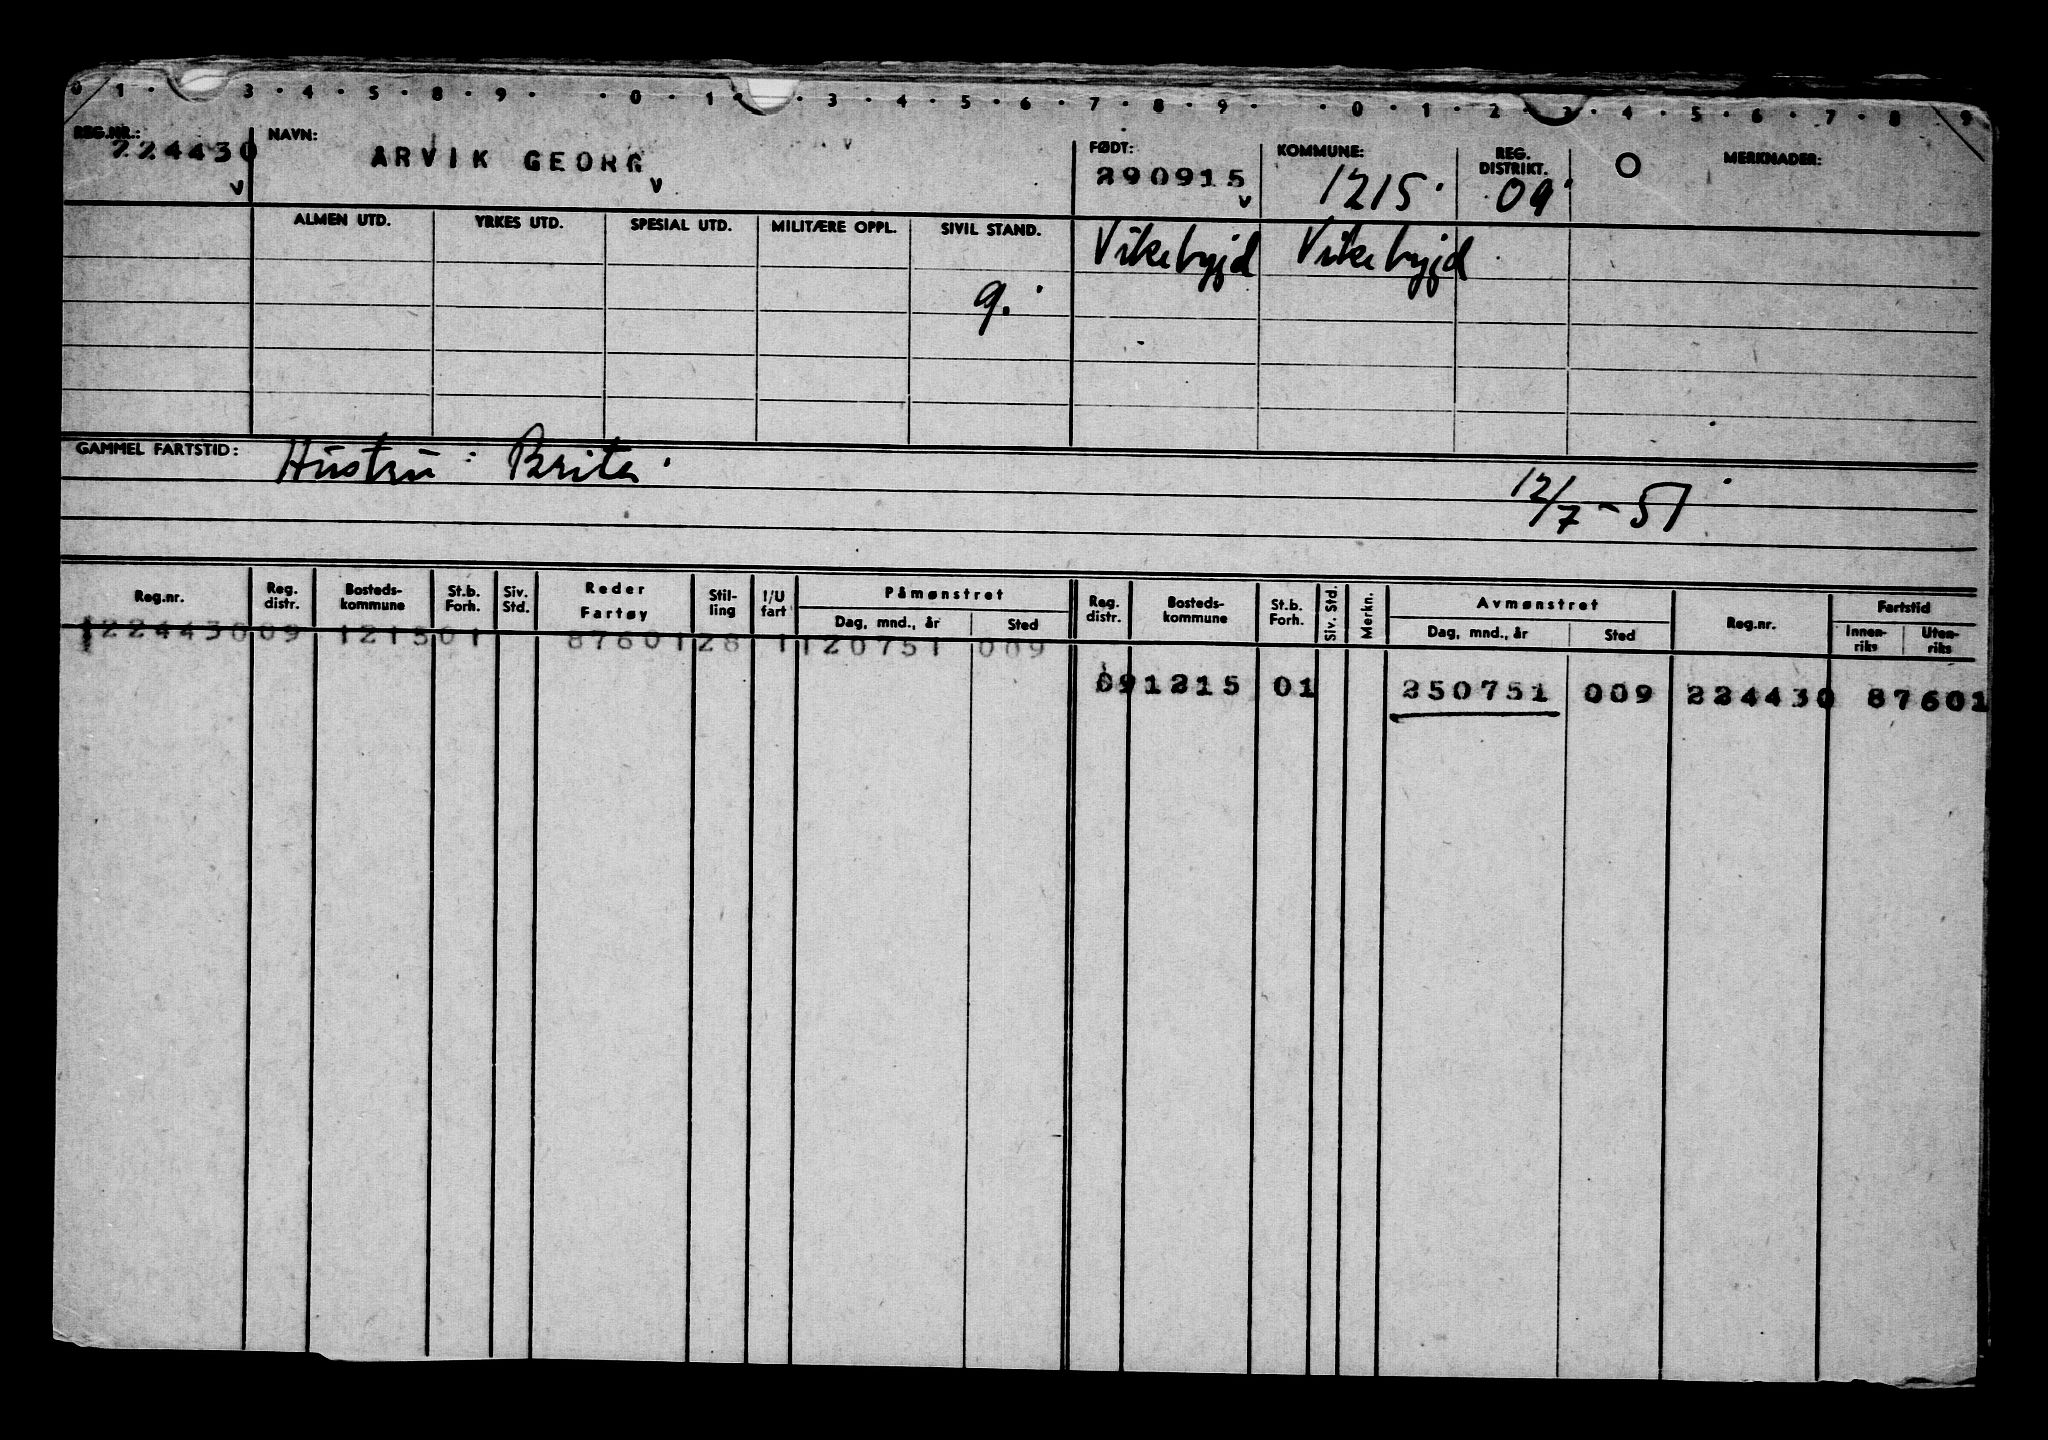 0 1 · 3 · 4 · 5 · 8 · 9 · · 0 · 1 · · 3 · 4 · 5 · 6 · 7 · 8 · 9 · · 0 · 1 · 2 · 3 · 4 · 5 · 6 · 7 · 8 · 9
REG.NR.: NAVN: FØDT: KOMMUNE: REG. DISTRIKT. O MERKNADER:
224430 ARVIK GEORG 290915 1215 09
v v v v
ALMEN UTD. YRKES UTD. SPESIAL UTD. MILITÆRE OPPL. SIVIL STAND. Vikebygd Vikebygd
g.
GAMMEL FARTSTID: Hustru: Brita.
12/7 - 51
Reg.nr. Reg. distr. Bosteds- kommune St.b. Forh. Siv. Std. Reder Fartøy Stil- ling I/U fart Påmønstret Dag, mnd., år Sted Reg. distr. Bosteds- kommune St.b. Forh. Siv. Std. Merkn. Avmønstret Dag, mnd., år Sted Reg.nr. Fartstid Innen- riks Uten- riks
1224430 09 1215 01 87601 28 1 120751 009
09 1215 01 250751 009 224430 87601